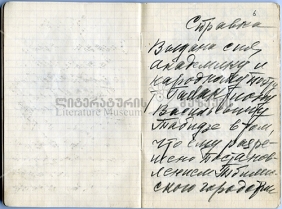 6
Справка
Выдана сия
академику и
народному поэту
Галактиону
Васильевичу
Табидзе в том,
что ему разре-
шено Постанов-
лением Тбилис-
ского горсовета
ლიტერატურის
Literature Museum